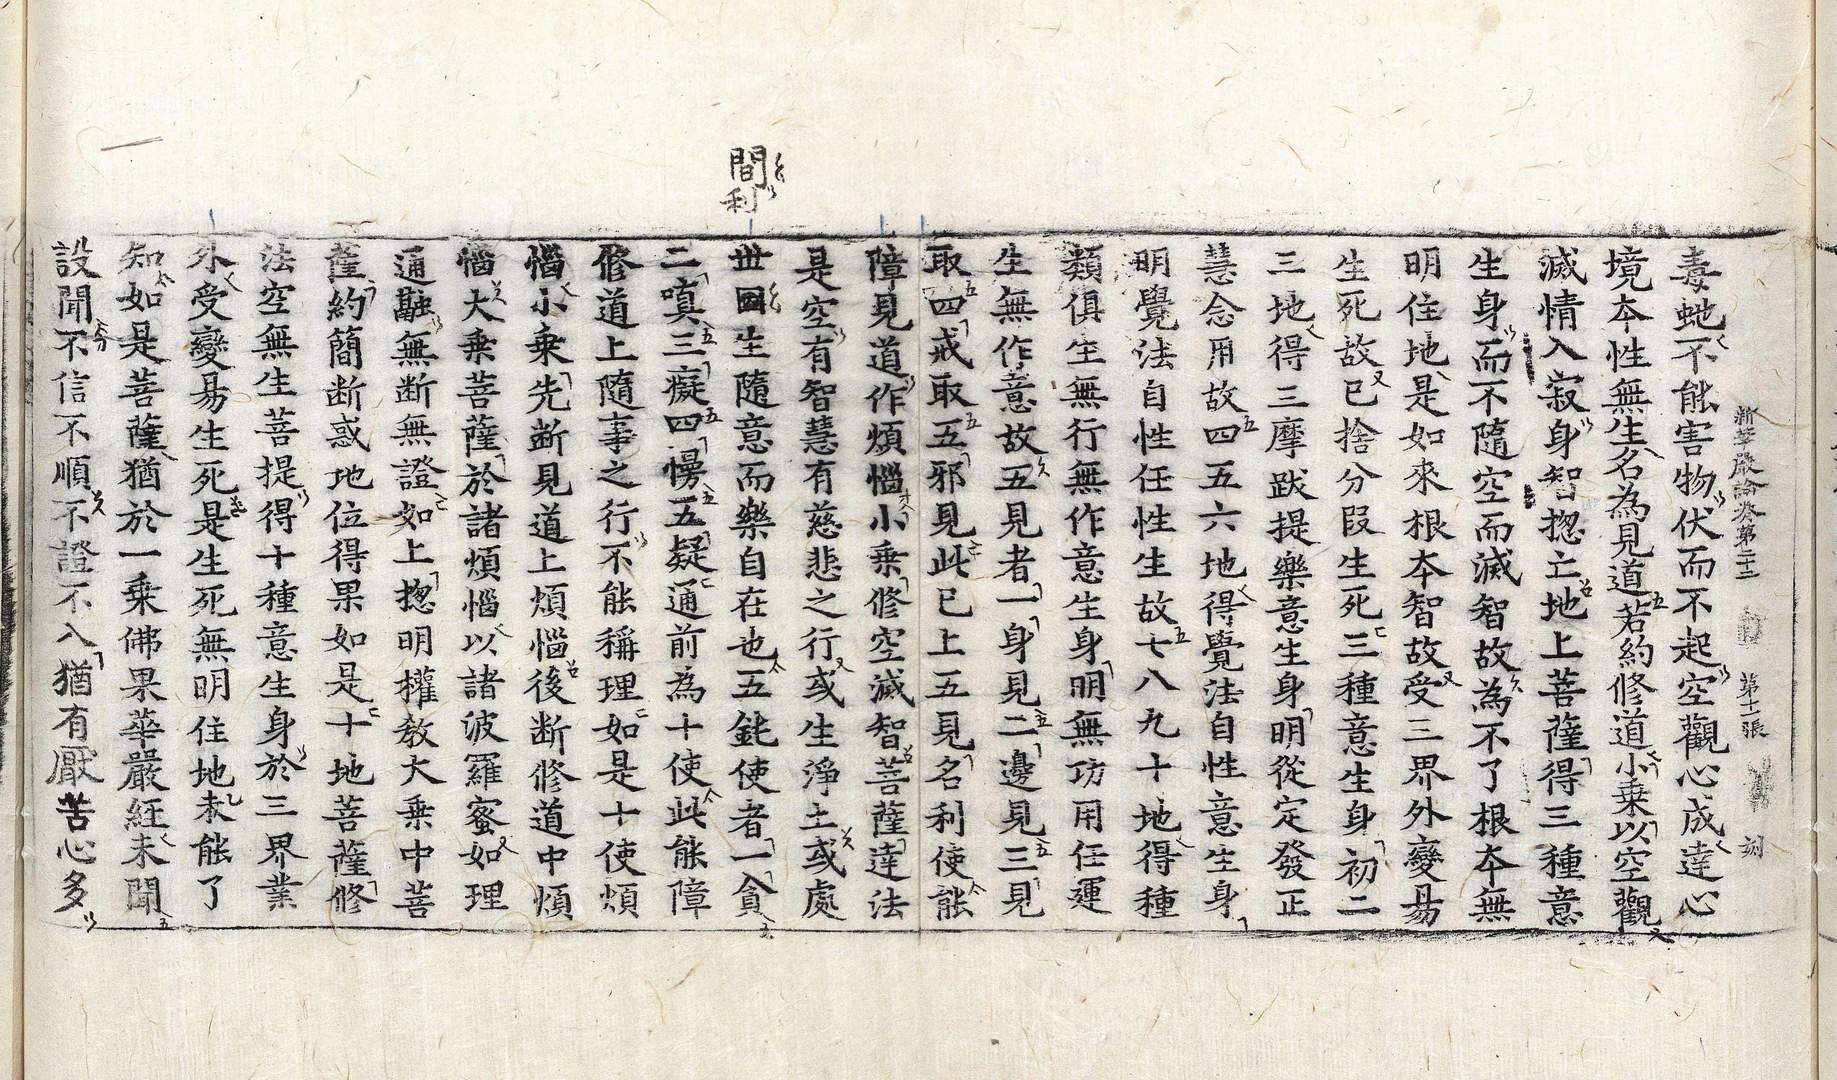 新華嚴論卷第二十三 第十二張 刻
毒虵不能害物伏而不起空觀心成達心
境本性無生名為見道若約修道小乗以空觀
滅情入寂身智揔亡地上菩薩得三種意
生身而不隨空而滅智故為不了根本無
明住地是如來根本智故受三界外變易
生死故已捨分段生死三種意生身初二
三地得三摩跋提樂意生身明從定發正
慧念用故四五六地得覺法自性意生身
明覺法自性任性生故七八九十地得種
類俱生無行無作意生身明無功用任運
生無作意故五見者一身見二邊見三見
取四戒取五邪見此已上五見名利使能
障見道作煩惱小乗修空滅智菩薩達法
是空有智慧有慈悲之行或生淨土或處
世国生隨意而樂自在也五鈍使者一貪
間
利
二嗔三癡四慢五疑通前為十使此能障
修道上隨事之行不能稱理如是十使煩
惱小乗先斷見道上煩惱後断修道中煩
惱大乗菩薩於諸煩惱以諸波羅蜜如理
通融無断無證如上揔明權教大乗中菩
薩約簡断惑地位得果如是十地菩薩修
法空無生菩提得十種意生身於三界業
外受變易生死是生死無明住地未能了
知如是菩薩猶於一乗佛果華嚴経未聞
設聞不信不順不證不入猶有厭苦心多